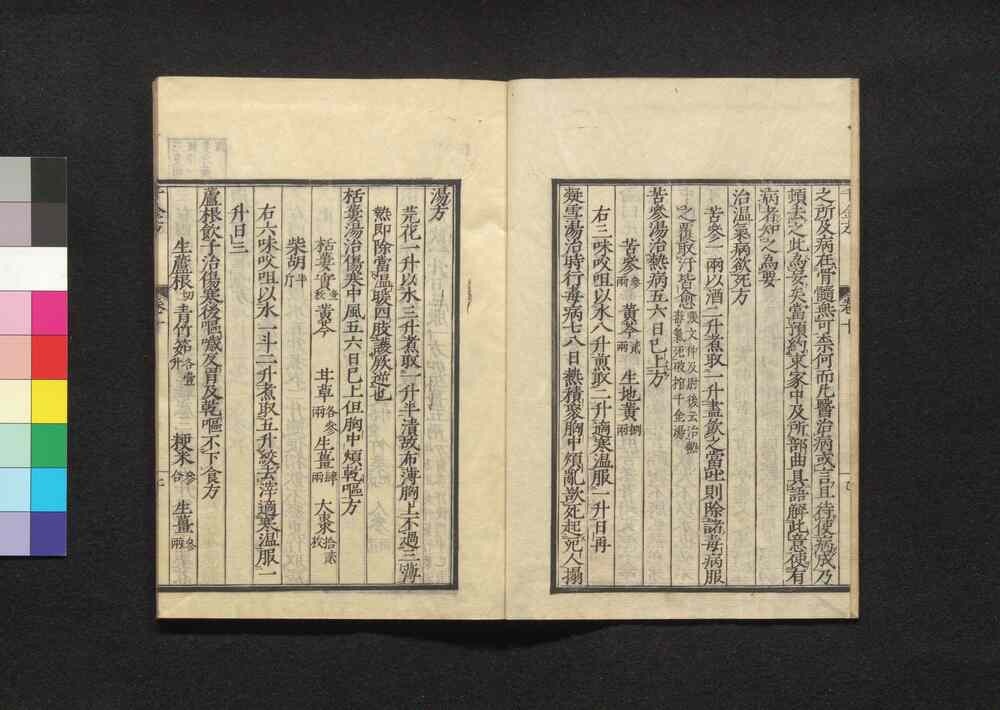 之所及病在骨髓無可奈何而凡醫治病或言且待使病成乃
頓去之此為妄矣當預約束家中及所部曲具語解此意使有
病者知之為要
治温氣病欲死方
苦參一兩以酒二升煮取一升盡飲之當吐則除諸毒病服
之覆取汗皆愈
苦參湯治熱病五六日已上方
苦參叁兩 黃芩貳兩 生地黃捌兩
右三味㕮咀以水八升煎取二升適寒温服一升日再
凝雪湯治時行毒病七八日熱積聚胸中煩亂欲死起死人搨
湯方
芫花一升以水三升煮取一升半漬故布薄胸上不過三薄
熱即除當温暖四肢護厥逆也
栝蔞湯治傷寒中風五六日已上但胸中煩乾嘔方
栝蔞實壹枚 黃芩 甘草各參兩 生薑肆兩 大棗拾貳枚
柴胡半斤
右六味㕮咀以水一斗二升煮取五升絞去滓適寒温服一
升日三
蘆根飲子治傷寒後嘔噦反胃及乾嘔不下食方
生蘆根切 青竹茹各壹升 粳米參合 生薑參兩
千金方
卷十